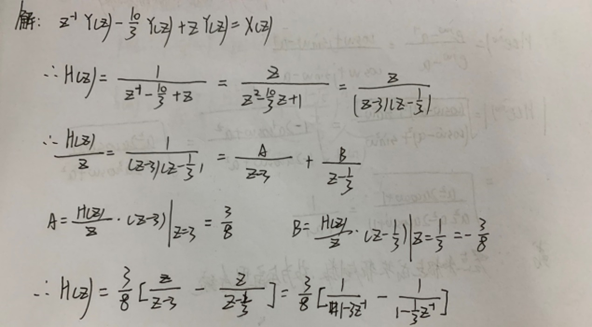 解: z⁻¹Y(z) - 10/3 Y(z) + zY(z) = X(z)
∴ H(z) = 1/(z⁻¹ - 10/3 + z) = z/(z² - 10/3 z + 1) = z/((z-3)(z-1/3))
∴ H(z)/z = 1/((z-3)(z-1/3)) = A/(z-3) + B/(z-1/3)
A = H(z)/z · (z-3)|z=3 = 3/8 B = H(z)/z · (z-1/3)|z=1/3 = -3/8
∴ H(z) = 3/8 [z/(z-3) - z/(z-1/3)] = 3/8 [1/(1-3z⁻¹) - 1/(1-1/3 z⁻¹)]